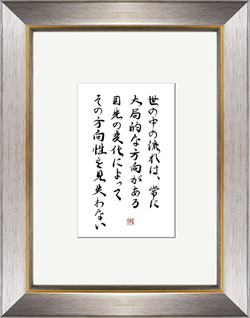 世の中の流れは、常に
大局的な方向がある
目先の変化によって
その方向性を見失わない